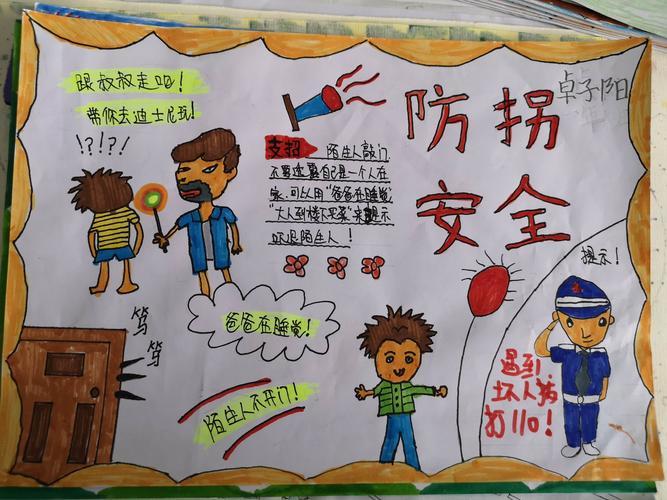 跟叔叔走吧!
带你去迪士尼玩!
!?!?!
支招 陌生人敲门,
不要透露自己是一个人在
家,可以用“爸爸在睡觉
“大人到楼下买菜”来
吓退陌生人!
防拐
安全
卓子阳
笃
笃
爸爸在睡觉!
陌生人不开门!
提示!
遇到
坏人请
打110!